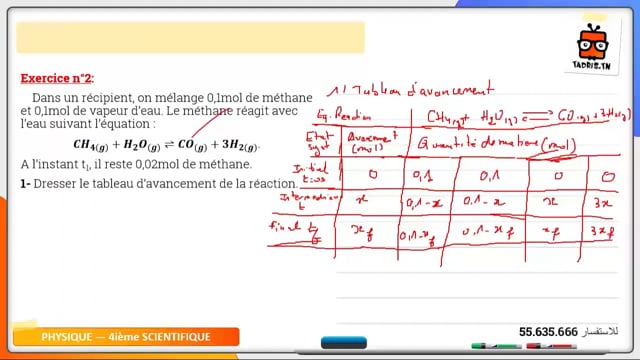 TADRIS.TN
Exercice n°2:
Dans un récipient, on mélange 0,1mol de méthane
et 0,1mol de vapeur d'eau. Le méthane réagit avec
l'eau suivant l'équation :
CH4(g) + H2O(g) ⇌ CO(g) + 3H2(g).
A l'instant t1, il reste 0,02mol de méthane.
1- Dresser le tableau d'avancement de la réaction.
1/ Tableau d'avancement
Eq. Reaction CH4(g) + H2O(g) ⇌ CO(g) + 3H2(g)
Etat syst Avancement (mol) Quantité de matière (mol)
Initial t=0s 0 0,1 0,1 0 0
Intermédiaire t x 0,1-x 0,1-x x 3x
final tf xf 0,1-xf 0,1-xf xf 3xf
PHYSIQUE — 4ième SCIENTIFIQUE
55.635.666 للاستفسار